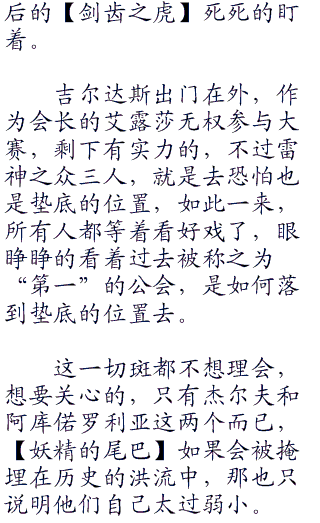 后的【剑齿之虎】死死的盯
着。
吉尔达斯出门在外，作
为会长的艾露莎无权参与大
赛，剩下有实力的，不过雷
神之众三人，就是去恐怕也
是垫底的位置，如此一来，
所有人都等着看好戏了，眼
睁睁的看着过去被称之为
“第一”的公会，是如何落
到垫底的位置去。
这一切斑都不想理会，
想要关心的，只有杰尔夫和
阿库偌罗利亚这两个而已，
【妖精的尾巴】如果会被掩
埋在历史的洪流中，那也只
说明他们自己太过弱小。